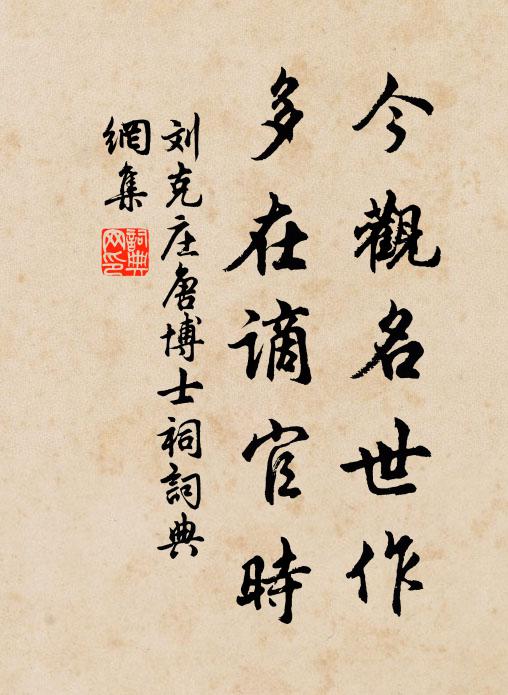 今觀名世作
多在謫官時
刘克庄唐博士祠詞典
網集
詞典網印